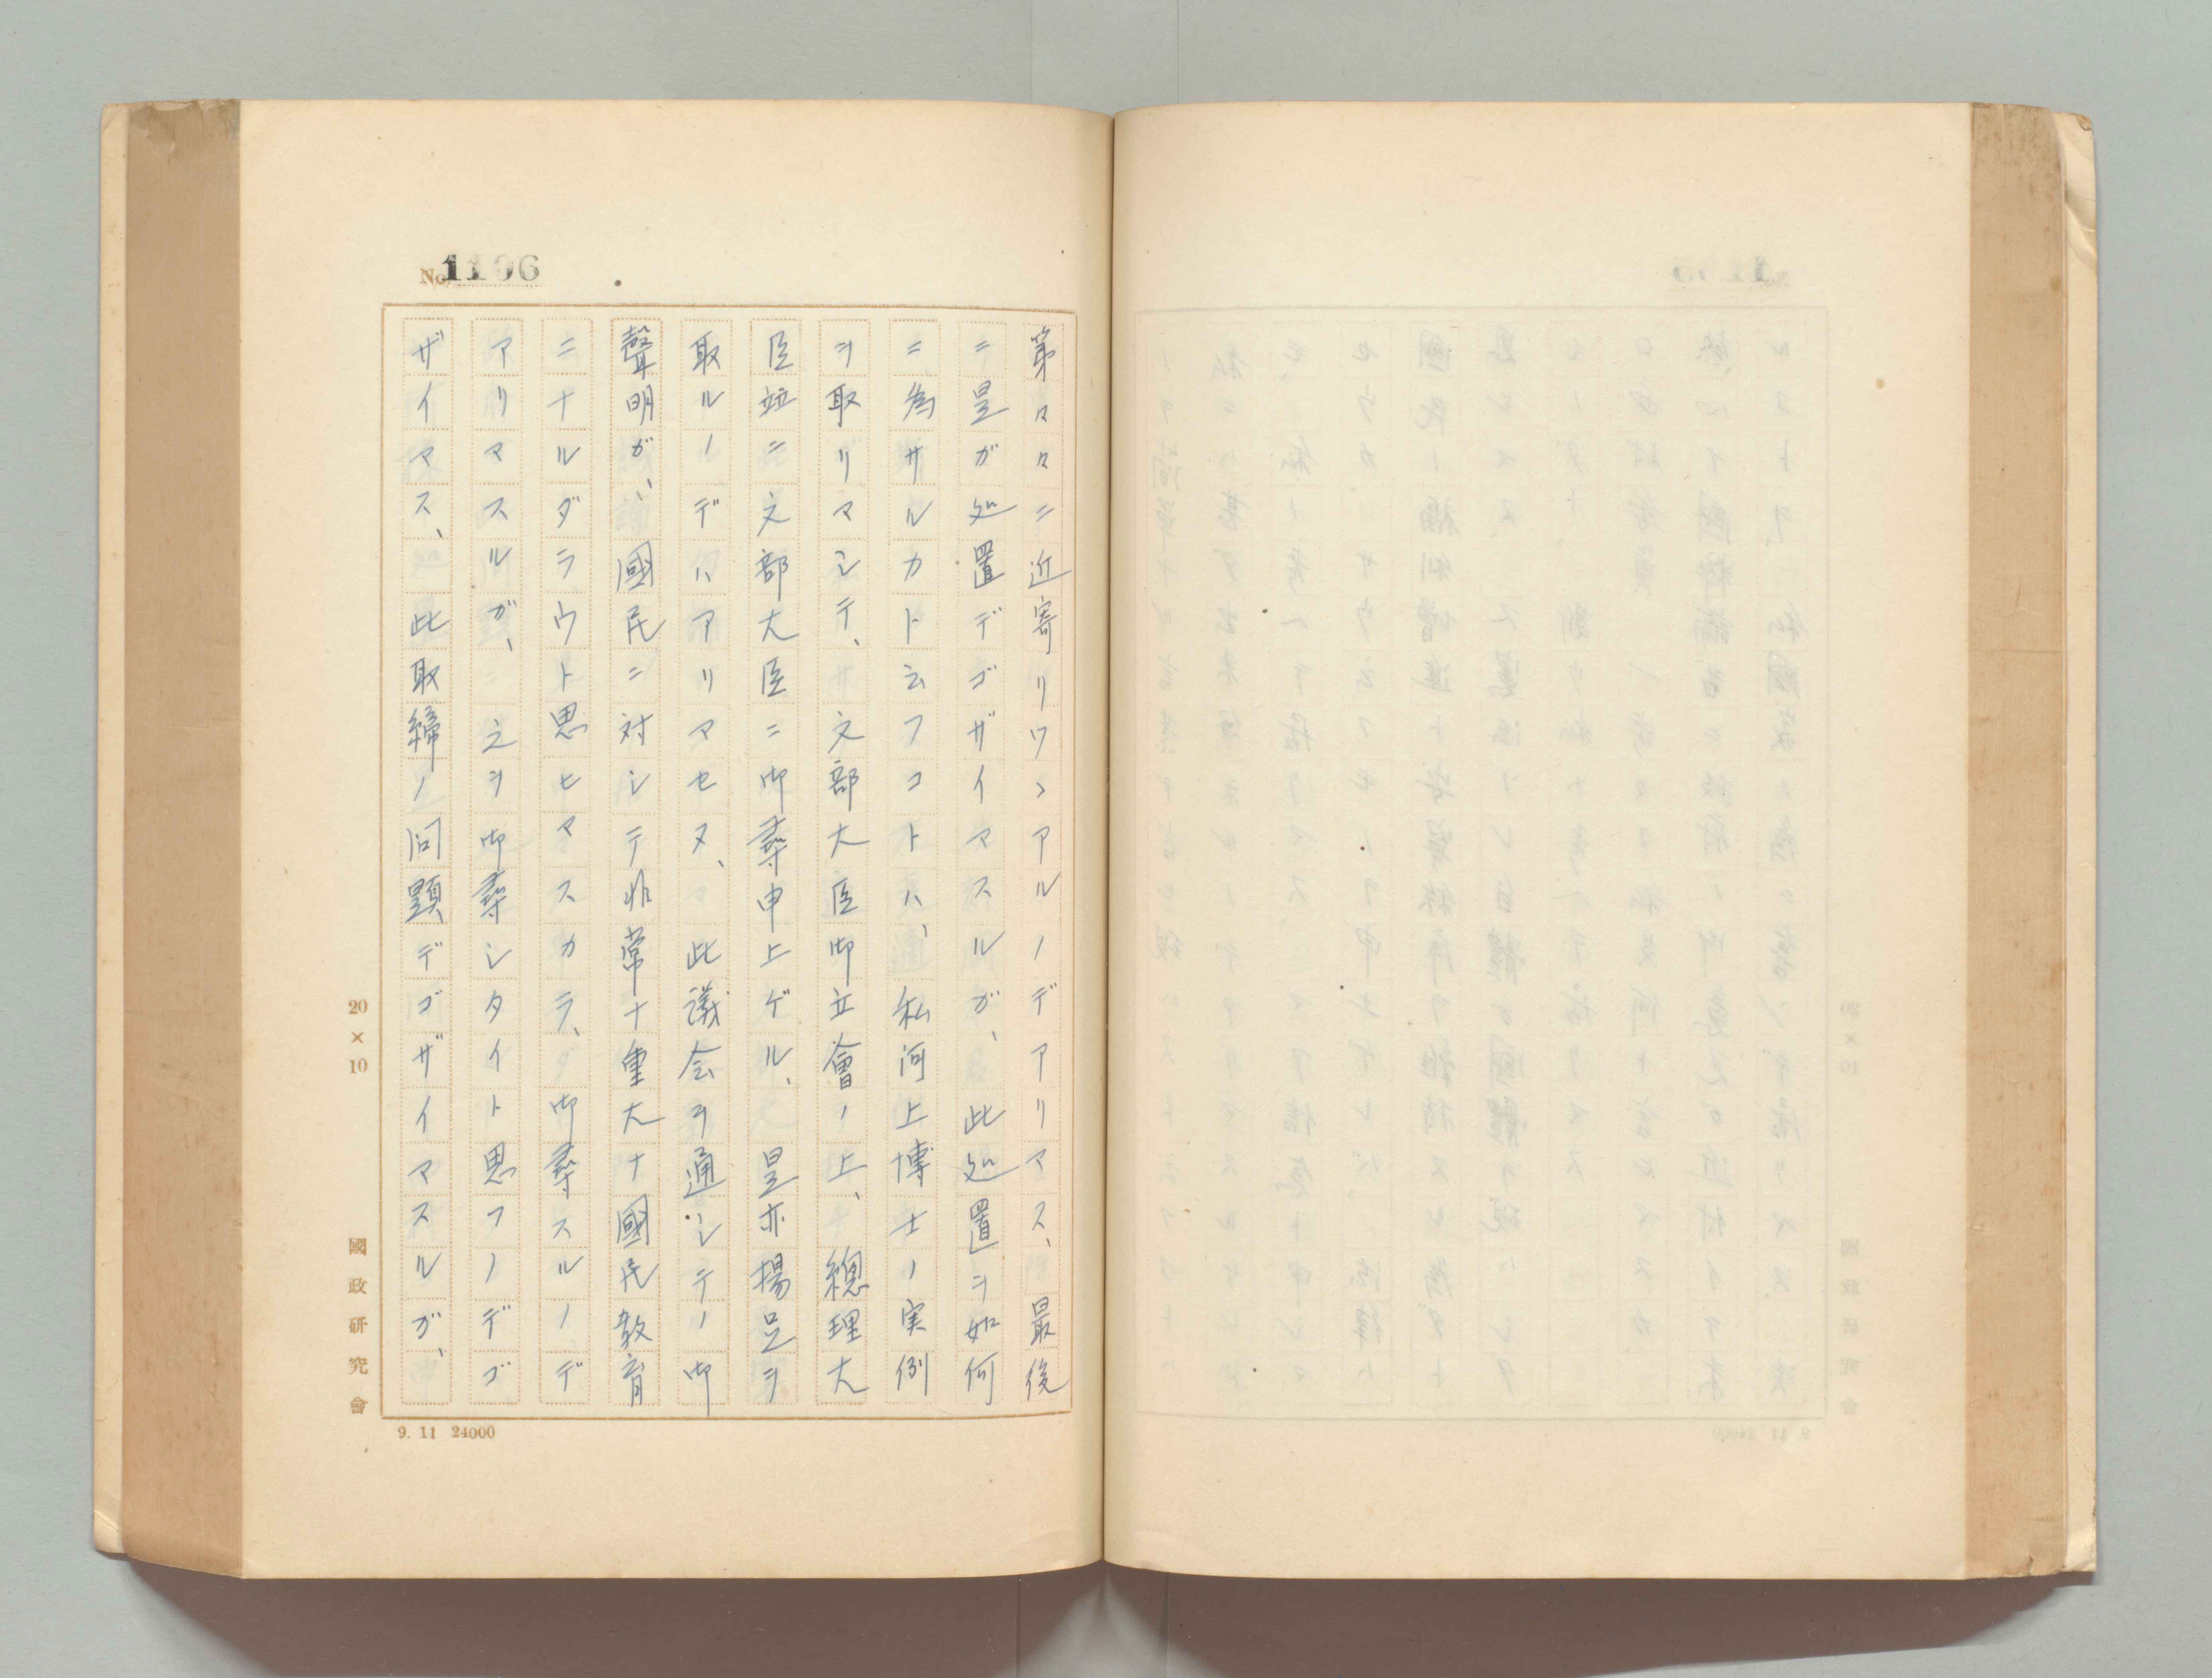 No. 1106
第々々ニ近寄リツヽアルノデアリマス、最後
ニ是ガ処置デゴザイマスルガ、此処置ヲ如何
ニ為サルカト云フコトハ、私河上博士ノ実例
ヲ取リマシテ、文部大臣御立會ノ上、總理大
臣竝ニ文部大臣ニ御尋申上ゲル、是亦揚足ヲ
取ルノデハアリマセヌ、此議会ヲ通シテノ御
聲明ガ、國民ニ対シテ非常ナ重大ナ國民教育
ニナルダラウト思ヒマスカラ、御尋スルノデ
アリマスルガ、之ヲ御尋シタイト思フノデゴ
ザイマス、此取締ノ問題デゴザイマスルガ、
20×10
國政研究會
9. 11 24000